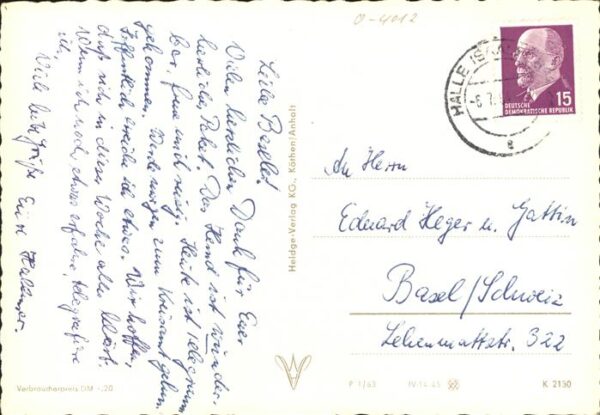 O-4012
Liebe Basler!
Vielen herzlichen Dank für Euer
herrliches Paket. Das Hemd ist wunder-
bar, freue mich riesig. Heute ist Telegramm
gekommen. Werde morgen zum Kreisamt gehen.
Hoffentlich erreiche ich etwas. Wir hoffen,
daß sich in dieser Woche alles klärt.
Wenn ich noch etwas erfahre, telegrafiere
ich.
Viele liebe Grüße Eure
Heldge-Verlag KG., Köthen/Anhalt
Verbraucherpreis DM -,20
HALLE (SAALE)
-8.7.
DEUTSCHE
DEMOKRATISCHE REPUBLIK
15
An Herrn
Eduard Heger u. Gattin
Basel/Schweiz
Lehenmattstr. 322
P 1/63
IV-14-45
K 2130